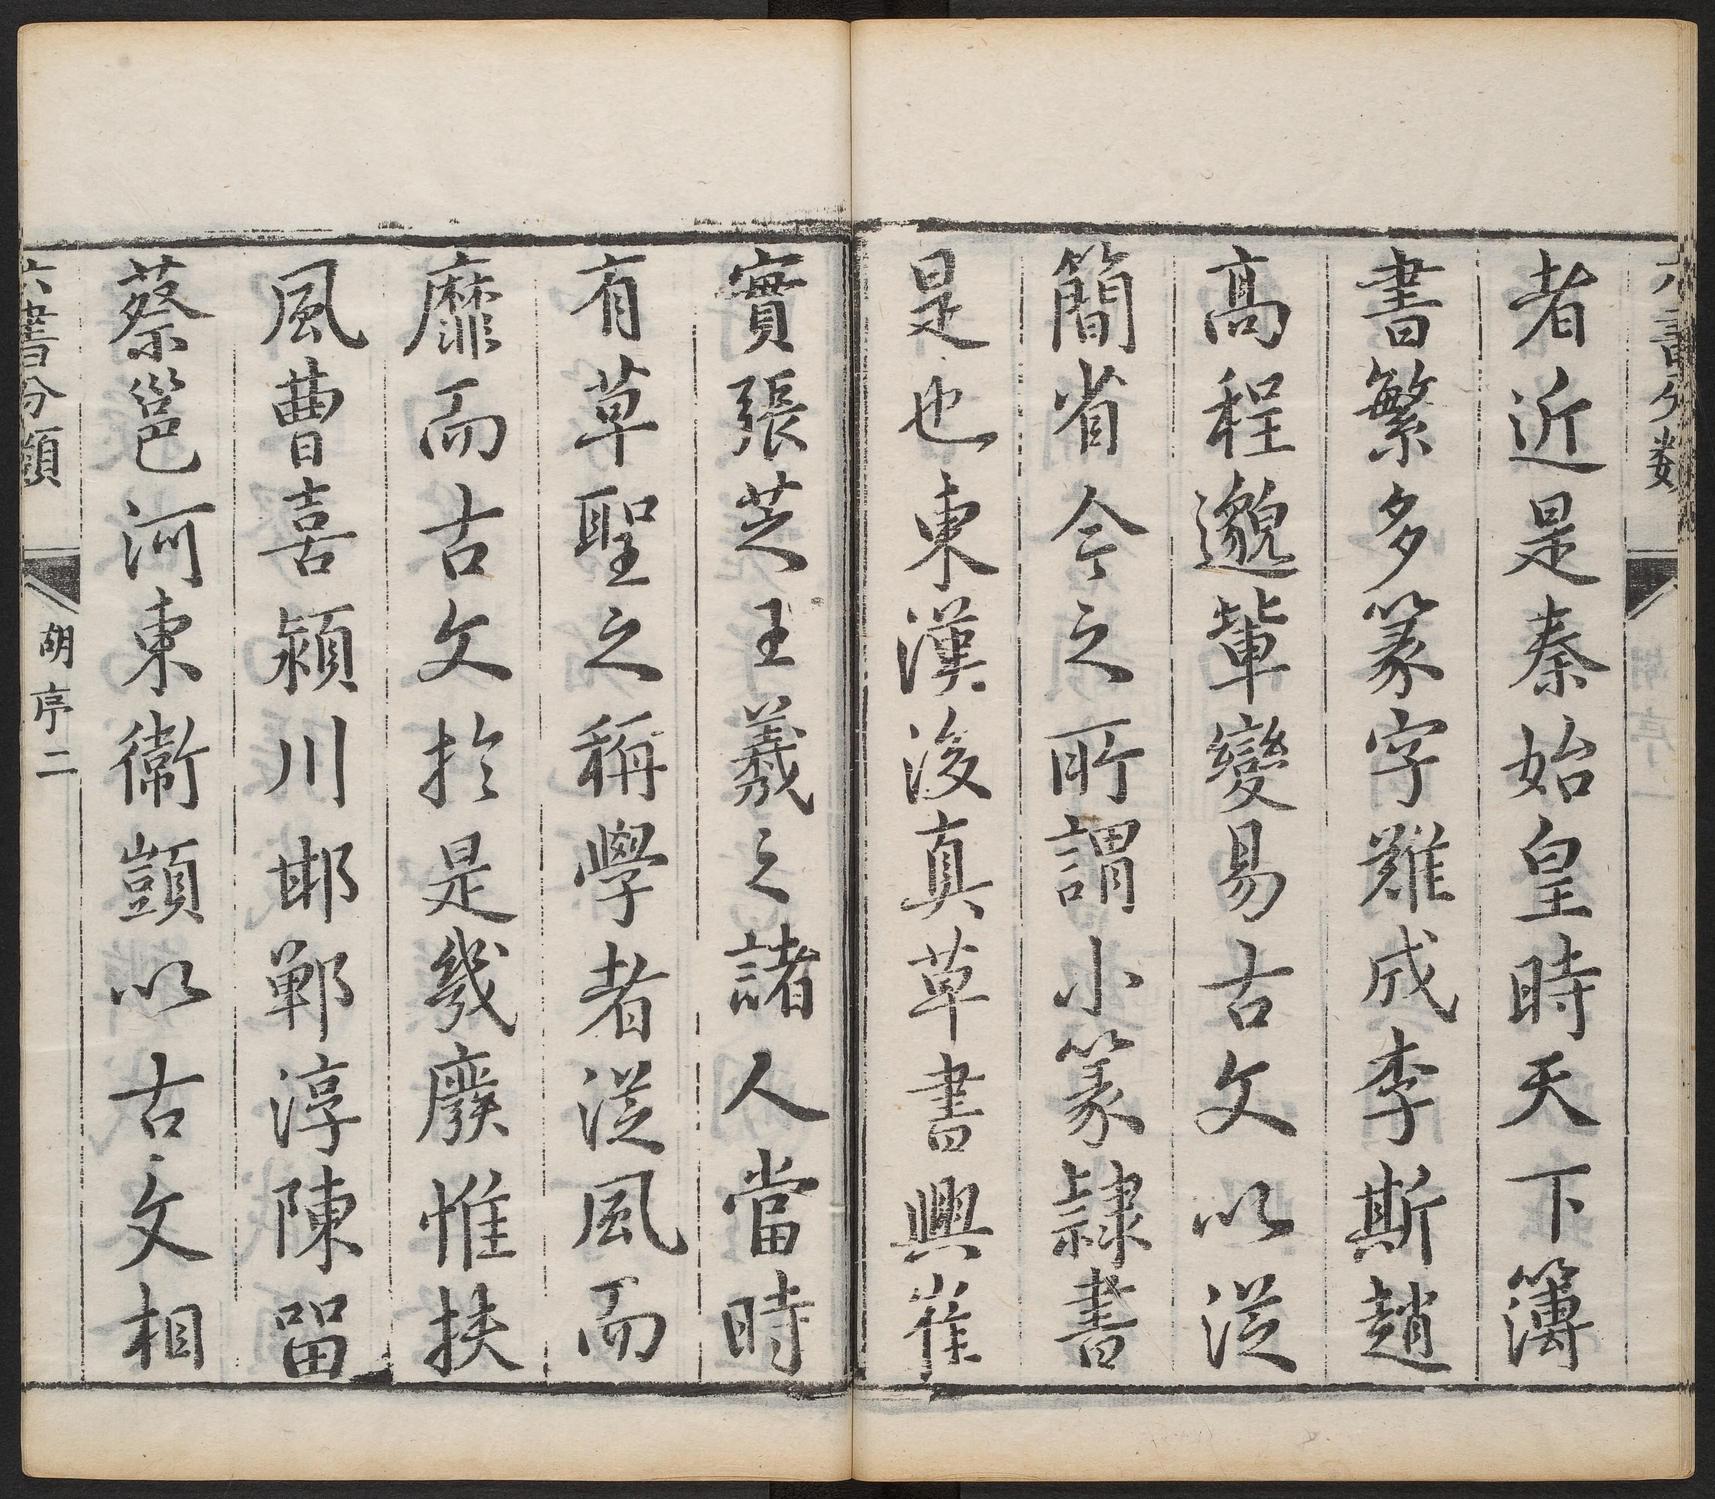 六書分類
者近是秦始皇時天下簿
書繁多篆字難成李斯趙
高程邈軰變易古文以從
簡省今之所謂小篆隷書
是也東漢後真草書興崔
實張芝王羲之諸人當時
有草聖之稱學者從風而
靡而古文於是幾廢惟扶
風曹喜潁川邯鄲淳陳留
蔡邕河東衛顗以古文相
六書分類
胡序二